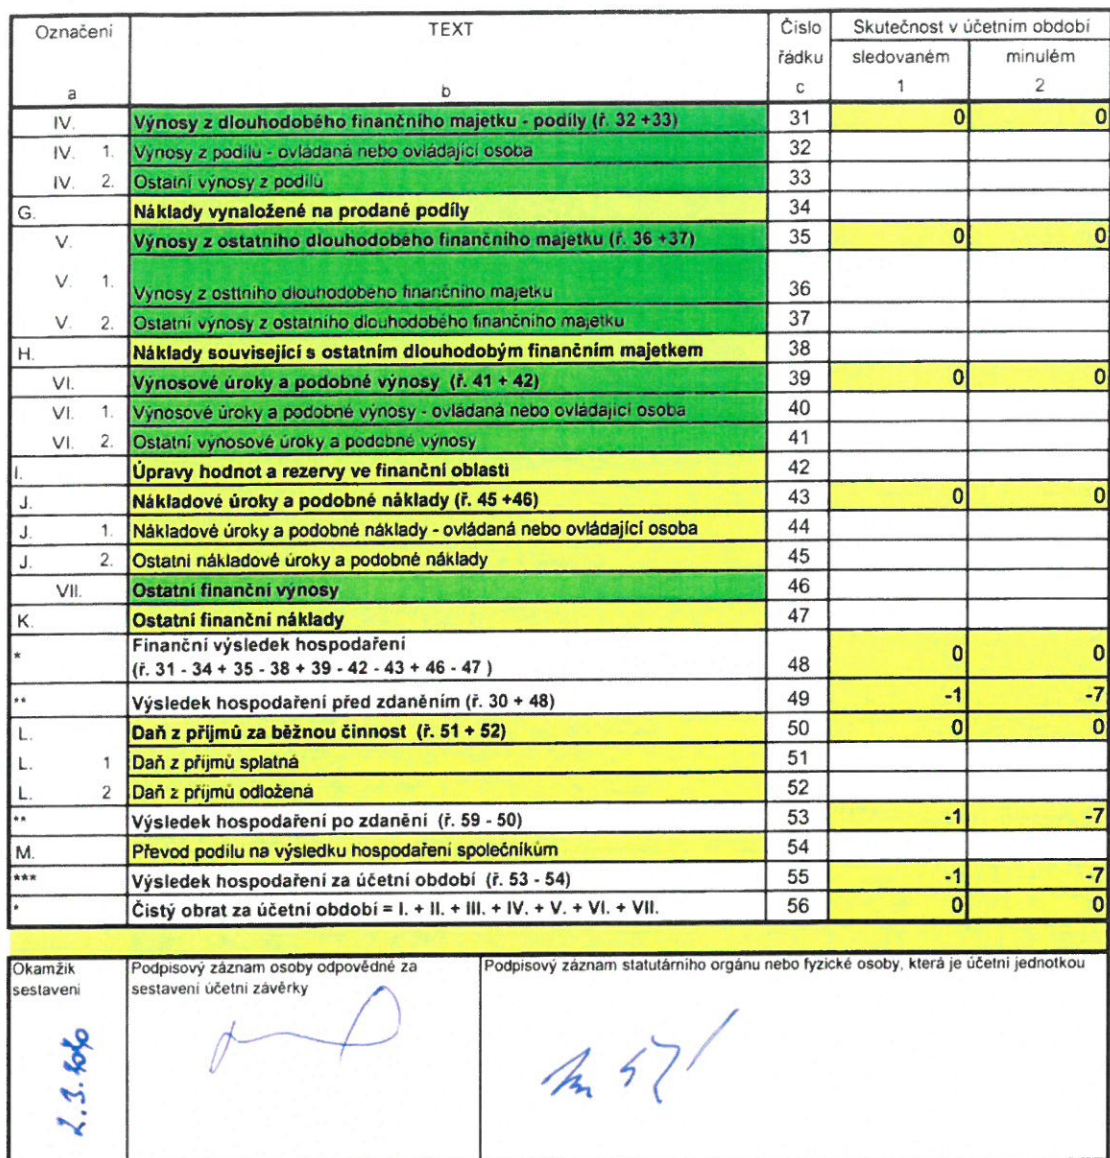 Označení TEXT Číslo Skutečnost v účetním období
řádku sledovaném minulém
a b c 1 2
IV. Výnosy z dlouhodobého finančního majetku - podíly (ř. 32 +33) 31 0 0
IV. 1. Výnosy z podílů - ovládaná nebo ovládající osoba 32
IV. 2. Ostatní výnosy z podílů 33
G. Náklady vynaložené na prodané podíly 34
V. Výnosy z ostatního dlouhodobého finančního majetku (ř. 36 +37) 35 0 0
V. 1. Výnosy z osttního dlouhodobého finančního majetku 36
V. 2. Ostatní výnosy z ostatního dlouhodobého finančního majetku 37
H. Náklady související s ostatním dlouhodobým finančním majetkem 38
VI. Výnosové úroky a podobné výnosy (ř. 41 + 42) 39 0 0
VI. 1. Výnosové úroky a podobné výnosy - ovládaná nebo ovládající osoba 40
VI. 2. Ostatní výnosové úroky a podobné výnosy 41
I. Úpravy hodnot a rezervy ve finanční oblasti 42
J. Nákladové úroky a podobné náklady (ř. 45 +46) 43 0 0
J. 1. Nákladové úroky a podobné náklady - ovládaná nebo ovládající osoba 44
J. 2. Ostatní nákladové úroky a podobné náklady 45
VII. Ostatní finanční výnosy 46
K. Ostatní finanční náklady 47
* Finanční výsledek hospodaření
(ř. 31 - 34 + 35 - 38 + 39 - 42 - 43 + 46 - 47 ) 48 0 0
** Výsledek hospodaření před zdaněním (ř. 30 + 48) 49 -1 -7
L. Daň z příjmů za běžnou činnost (ř. 51 + 52) 50 0 0
L. 1 Daň z příjmů splatná 51
L. 2 Daň z příjmů odložená 52
** Výsledek hospodaření po zdanění (ř. 59 - 50) 53 -1 -7
M. Převod podílu na výsledku hospodaření společníkům 54
*** Výsledek hospodaření za účetní období (ř. 53 - 54) 55 -1 -7
* Čistý obrat za účetní období = I. + II. + III. + IV. + V. + VI. + VII. 56 0 0
Okamžik sestavení
Podpisový záznam osoby odpovědné za
sestavení účetní závěrky
Podpisový záznam statutárního orgánu nebo fyzické osoby, která je účetní jednotkou